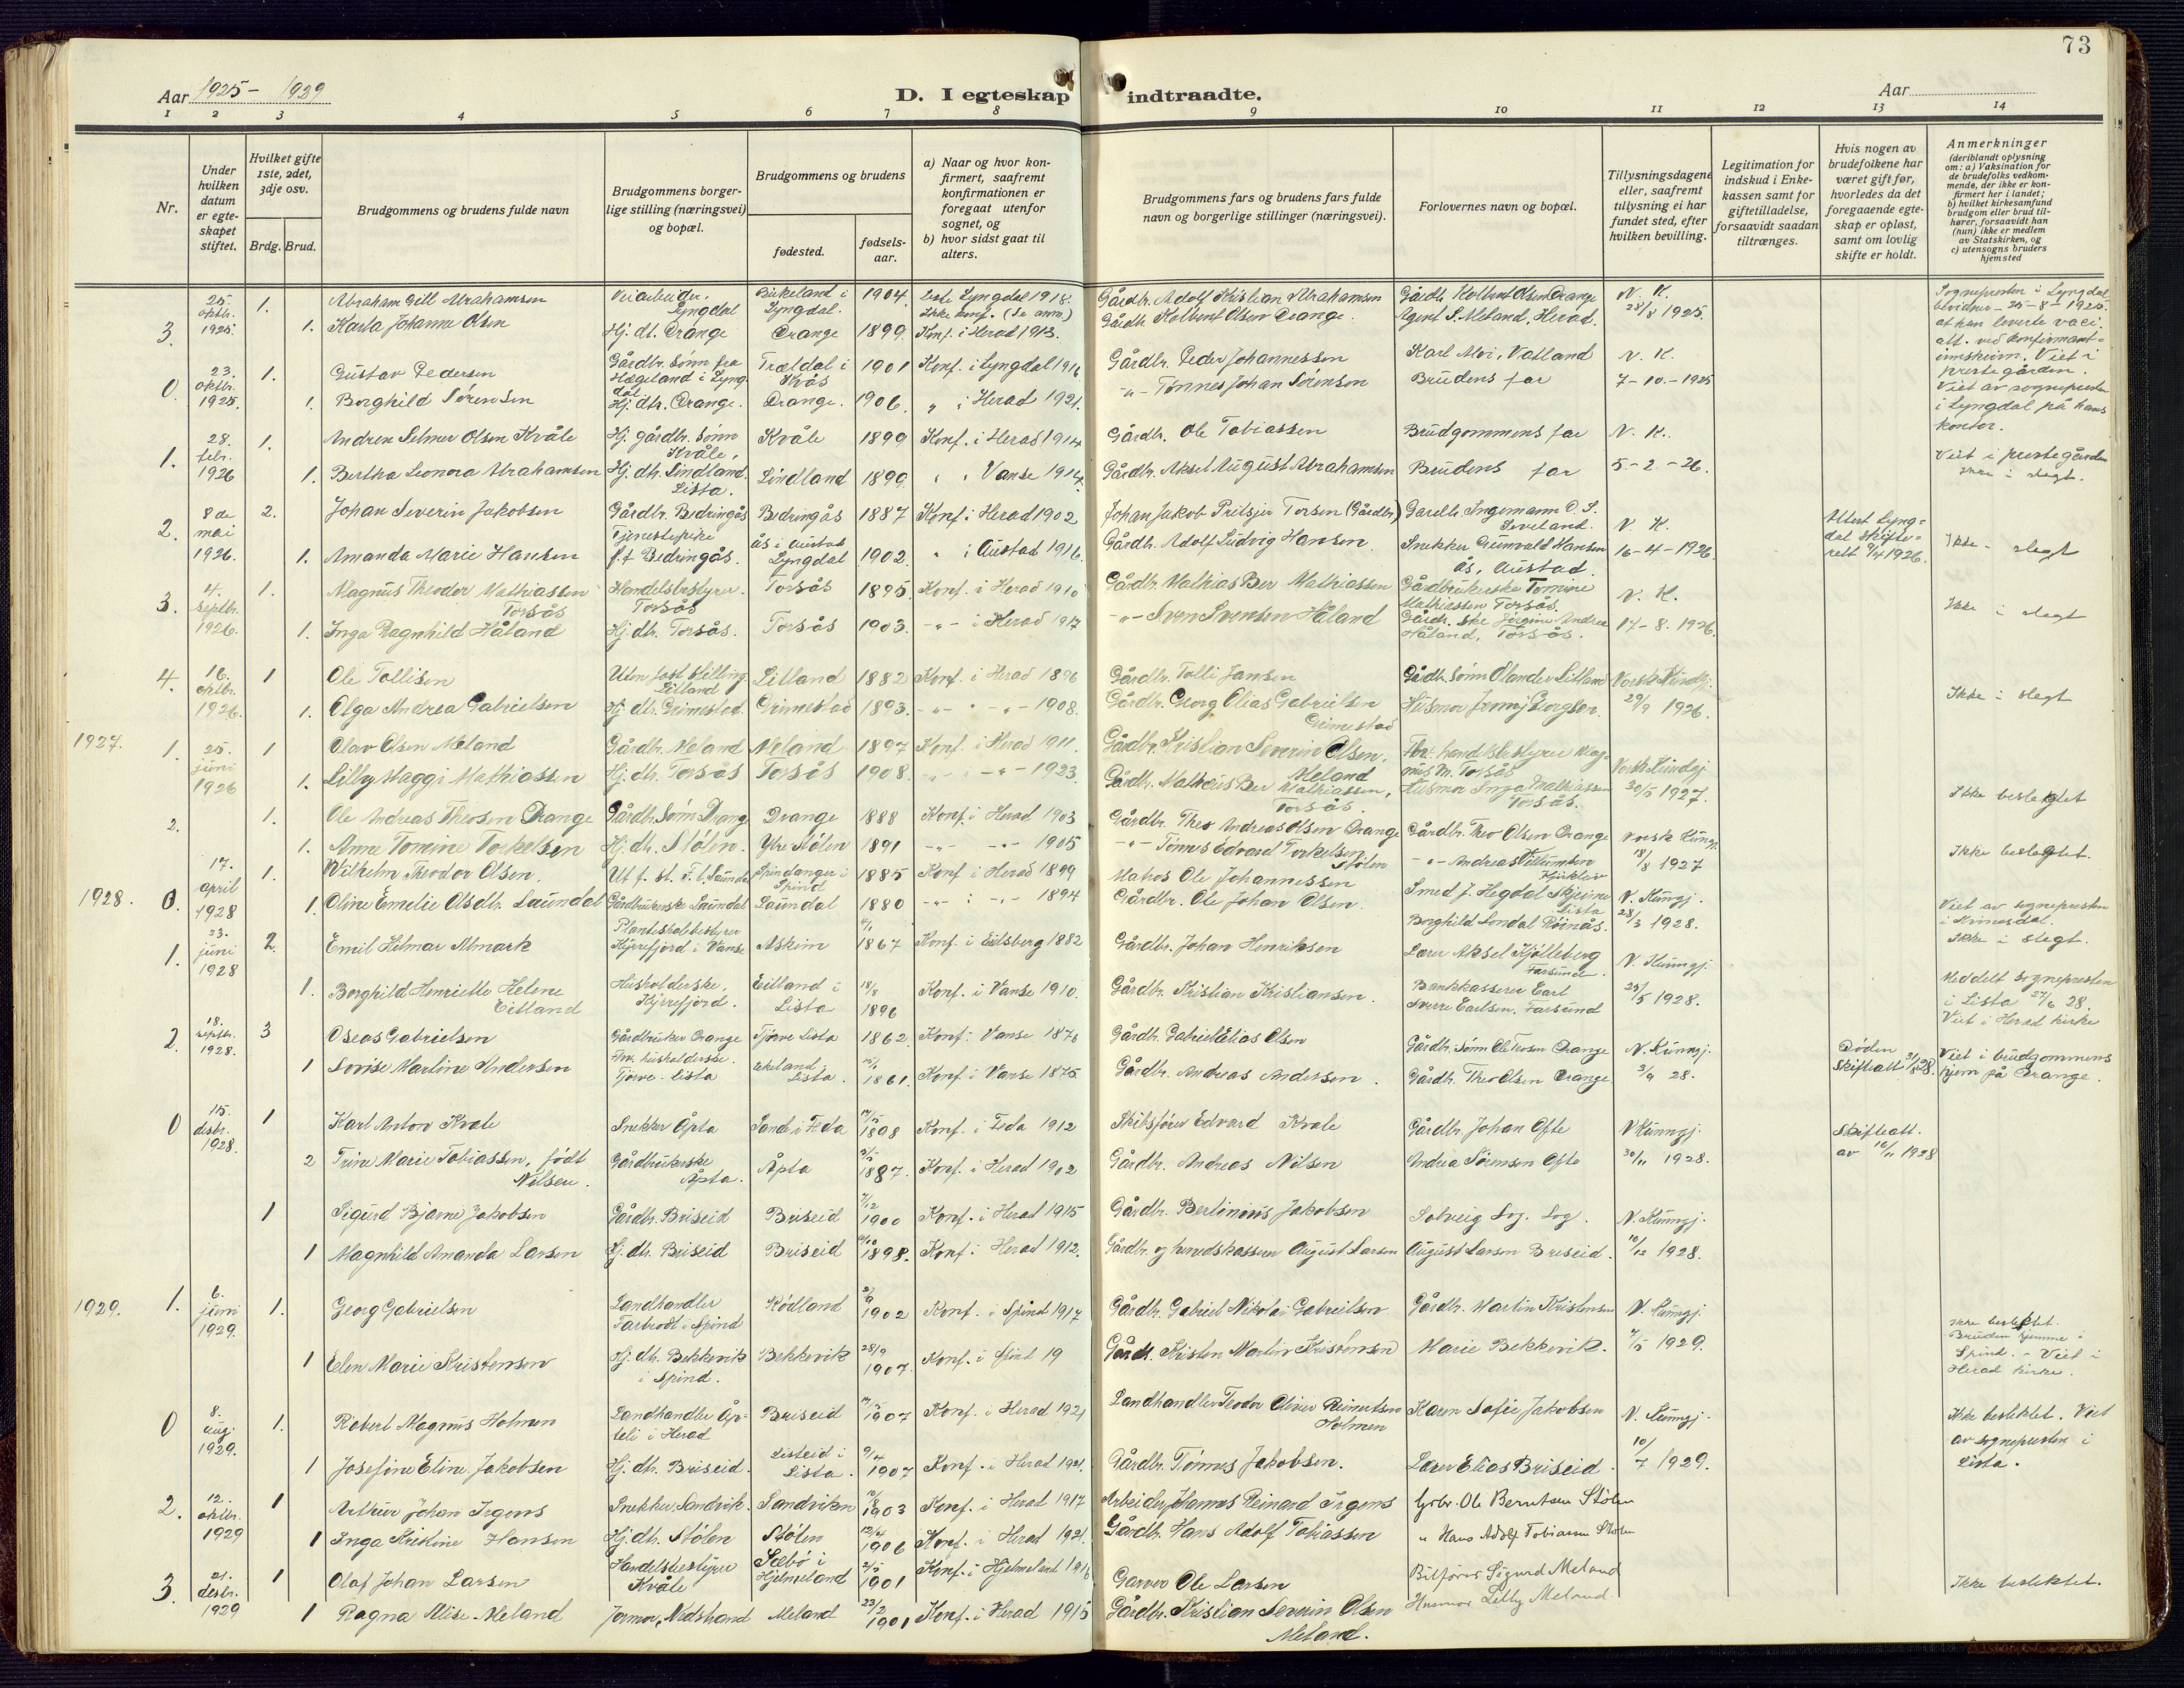 73
Aar 1925 – 1929
D. I egteskap indtraadte.
Aar
1 2 3 4 5 6 7 8 9 10 11 12 13 14
Nr.
Under hvilken datum er egteskapet stiftet.
Hvilket gifte 1ste, 2det, 3dje osv.
Brdg. Brud.
Brudgommens og brudens fulde navn
Brudgommens borgerlige stilling (næringsvei) og bopæl.
Brudgommens og brudens
fødested.
fødselsaar.
a) Naar og hvor konfirmert, saafremt konfirmationen er foregaat utenfor sognet, og
b) hvor sidst gaat til alters.
Brudgommens fars og brudens fars fulde navn og borgerlige stillinger (næringsvei).
Forlovernes navn og bopæl.
Tillysningsdagene eller, saafremt tillysning ei har fundet sted, efter hvilken bevilling.
Legitimation for indskud i Enkekassen samt for giftetilladelse, forsaavidt saadan tiltrænges.
Hvis nogen av brudefolkene har været gift før, hvorledes da det foregaaende egteskap er opløst, samt om lovlig skifte er holdt.
Anmerkninger
(deriblandt oplysning om: a) Vaksination for de brudefolks vedkommende, der ikke er konfirmert her i landet; b) hvilket kirkesamfund brudgom eller brud tilhører, forsaavidt han (hun) ikke er medlem av Statskirken, og c) utensogns bruders hjemsted
3. 25. oktbr. 1925. 1. Abraham Gill Abrahamsen Veiarbeider. Lyngdal Birkeland i Lyngdal. 1904. Lyngdal 1918. Ikke konf. (Se anm) Gårdbr. Adolf Kristian Abrahamsen Gårdb. Kolbent Olsen Drange N. K.
1. Karla Johanne Olsen Hj. dt. Drange Drange 1899. Konf. i Herad 1913. Gårdb. Kolbent Olsen Drange. Agent S. Meland, Herad. 28/8 1925.
0 23. oktbr. 1925. 1. Gustav Pedersen Gårdbr. sønn fra Hægeland i Lyngdal. Trældal i Kvås 1901 Konf. i Lyngdal 1916 Gårdbr. Peder Johannessen Karl Moi, Vatland N. K.
1. Borghild Sørensen Hj. dtr. Drange. Drange. 1906. " i Herad 1921. -"- Tønnes Johan Sørensen Brudens far 7-10-1925
Viet i prestegården.
Viet av sognepresten i Lyngdal på hans kontor.
1. 28. febr. 1926 1. Andreu Selmer Olsen Kvåle Hj. gårdbr. sønn Kvåle, Kvåle 1899 Konf. i Herad 1914 Gårdbr. Ole Tobiassen Brudgommens far N. K.
1. Bertha Leonora Abrahamsen Hj. dtr. Lindland. Lista. Lindland 1899. " " Vanse 1914. Gårdbr. Aksel August Abrahamsen Brudens far 5-2-26.
Viet i prestegården Ikke i slegt.
2. 8de mai 1926. 2. Johan Severin Jakobsen Gårdbr. Bedringås Bedringås 1887 Konf. i Herad 1902 Johan Jakob Pritsjer Torsen (Gårdbr) Gardbr. Ingemann O. S. N. K.
1. Amanda Marie Hansen Tjenestepike f. t. Bedringås. ås i Austad Lyngdal 1902. " i Austad 1916. Gårdbr. Adolf Ludvig Hansen Snekker Gunvald Hansen ås, Austad. 16-4-1926. Lyngdal skifterett 9/4 1926. Ikke i slegt
3. 4. septbr. 1926. 1. Magnus Theodor Mathiassen Torsås Handelsbestyrer. Torsås Torsås 1895. Konf. i Herad 1910 Gårdbr. Mathias Ber Mathiassen Gårdbrukerske Tomine Mathiassen Torsås. N. K.
1. Inga Ragnhild Håland Hj. dtr. Torsås. Torsås 1903. -"- i Herad 1917 -"- Sven Svensen Håland Gårdbr.ske Jørgine Andrea Håland, Torsås. 17-8. 1926. Ikke i slegt
4. 16. oktbr. 1926. 1 Ole Tollisen Uten fast stilling. Litland Litland 1882 Konf. i Herad 1896 Gårdbr. Tolli Jansen Gårdb. sønn Olander Litland Norsk Kundgj.
1. Olga Andrea Gabrielsen Hj. dtr. Grimestad. Grimestad 1893. -"- " -"- 1908. Gårdbr. Georg Elias Gabrielsen Grimestad Husmor Jenny Bergsen. 29/9 1926. Ikke i slegt
1927. 1. 25. juni 1926 1 Olav Olsen Meland Gårdbr. Meland Meland 1897 Konf. i Herad 1911. Gårdbr. Kristian Severin Olsen. Meland Fhv. handelsbestyrer Magnus M. Torsås Norsk Kundgj
1. Lilly Maggi Mathiassen Hj. dtr. Torsås Torsås 1908. -"- -"- 1923. Gårdbr. Mathias Ber Mathiassen, Torsås. Husmor Inga Mathiassen Torsås. 30/5 1927. Ikke beslegtet
2. 1. Ole Andreas Theosen Drange Gårdbr. Sønn Drange Drange 1888 Konf. i Herad 1903 Gårdbr. Theo Andreas Olsen Drange Gårdbr. Theo Olsen Drange Norsk Kung.
1. Anne Tomine Torkelsen Hj. dtr. Stølen. Ytre Stølen 1891 -"- -"- 1905 -"- Tønnes Edvard Torkelsen Stølen -"- Andreas 18/8 1927 Ikke beslegtet.
1928. 0. 17. april 1928 1. Wilhelm Theodor Olsen. Ut f. st. F. t. Saundal Spindanger i Spind 1885 Konf i Herad 1899 Matros Ole Johannessen Smed J. Hegdal Skjeime Lista N. Kungj.
1. Oline Emelie Olsdtr. Laundal Gårdbrukerske Laundal Laundal 1880 -"- i -"- 1894 Gårdbr. Ole Johan Olsen. Borghild Londal Røinås. 28/3 1928. Viet av sognepresten i Kvinesdal.
1. 23. juni 1928 2. Emil Hilmar Almark Planteskolebestyrer Kjørrefjord i Vanse Askim 4/1 1867 Konf. i Eidsberg 1882 Gårdbr. Johan Henriksen Lærer Aksel Kjølleberg Farsund. N. Kunngj. Ikke i slegt.
1. Borghild Henriette Helene Eitland Husholderske, Kjørrefjord. Eitland i Lista 18/8 1896 Konf. i Vanse 1910. Gårdbr. Kristian Kristiansen. Bankkasserer Carl Sverre Carlsen, Farsund 25/5 1928. Meddelt sognepresten i Lista 27/6 28. Viet i Herad kirke
2. 18. septbr. 1928. 3 Oseas Gabrielsen Gårdbruker Drange Tjørve Lista 1862. Konf: Vanse 1876 Gårdb. Gabriel Elias Olsen Gårdbr. Sønn Ole Teosen Drange N. Kunngj.
1 Lovise Martine Andersen Fhv. husholderske. Tjørve. Lista Lista. 1861. Konf. i Vanse 1875. Gårdbr. Andreas Andersen. Gårdb. Theo Olsen Drange 3/9 28. Døden Skifteatt 31/8 28. Viet i brudgommens hjem på Drange.
0 15. desbr. 1928. 1 Karl Anton Kvale Snekker Åpta Sande i Feda 1898 Konf. i Feda 1912 Skibsfører Edvard Kvale Gårdbr. Johan Ofte N Kunngj.
2 Trine Marie Tobiassen, født Nilsen. Gårdbrukerske Åpta. Åpta 1887. Konf. i Herad 1902 Gårdbr. Andreas Nilsen Andrea Sørensen Ofte 30/11 1928. Skifteatt. av 16/11 1928
1 Sigurd Bjarne Jakobsen Gårdbr. Briseid Briseid 7/12 1900 Konf. i Herad 1915 Gårdbr. Bertinius Jakobsen Solveig Log. Log. N. Kunngj.
1 Magnhild Amanda Larsen Hj. dtr. Briseid Briseid 1898. Konf. i Herad 1912. Gårdbr. og herredskasserer August Larsen August Larsen Briseid. 10/12 1928.
1929. 1. 6. juni 1929. 1. Georg Gabrielsen Landhandler Farbrodt i Spind Rødland 2/9 1902 Konf. i Spind 1917 Gårdbr. Gabriel Nikolai Gabrielsen Gårdbr. Martin Kristensen N. Kunngj.
1 Elen Marie Kristensen Hj. dtr. Bekkevik i Spind. Bekkevik 28/9 1907. Konf. i Spind 19 Gårdb. Kristen Martin Kristensen Marie Bekkevik. 7/5 1929. Ikke beslektet. Bruden hjemme i Spind. – Viet i Herad kirke.
0 8. aug. 1929. 1. Robert Magnus Holmen Landhandler Åpteli i Herad Briseid 1907 Konf. i Herad 1921 Landhandler Teodor Oliver Reinertsen Holmen Karen Sofie Jakobsen N. Kunngj.
1 Josefine Eline Jakobsen Hj. dtr. Briseid. Listeid i Lista. 9/4 1907 Konf. i Herad 1921. Gårdbr. Tønnes Jakobsen. Lærer Elias Briseid. 10/7 1929. Ikke beslektet. Viet av sognepresten i Lista.
2. 12. oktbr. 1929 1 Arthur Johan Irgens Snekker, Sandvik. Sandviken 10/8 1903 Konf. i Herad 1917 Arbeider Johannes Reinard Irgens Grbr. Ole Berntsen Stølen
1 Inga Kristine Hansen Hj. dtr. Stølen Stølen 12/4 1906 Konf. i Herad 1921. Gårdb. Hans Adolf Tobiassen " Hans Adolf Tobiassen Stølen
3. 21. desbr. 1929 1 Olaf Johan Larsen Handelsbestyrer Kvåle Sæbø i Hjelmeland 2/5 1901 Konf. i Hjelmeland 1916 Garver Ole Larsen Bilfører Sigurd Meland Ikke beslektet.
1 Ragna Alise Meland Jormor, Nedstrand Meland 23/2 1901 Konf. i Herad 1915 Gårdbr. Kristian Severin Olsen Meland. Husmor Lilly Meland